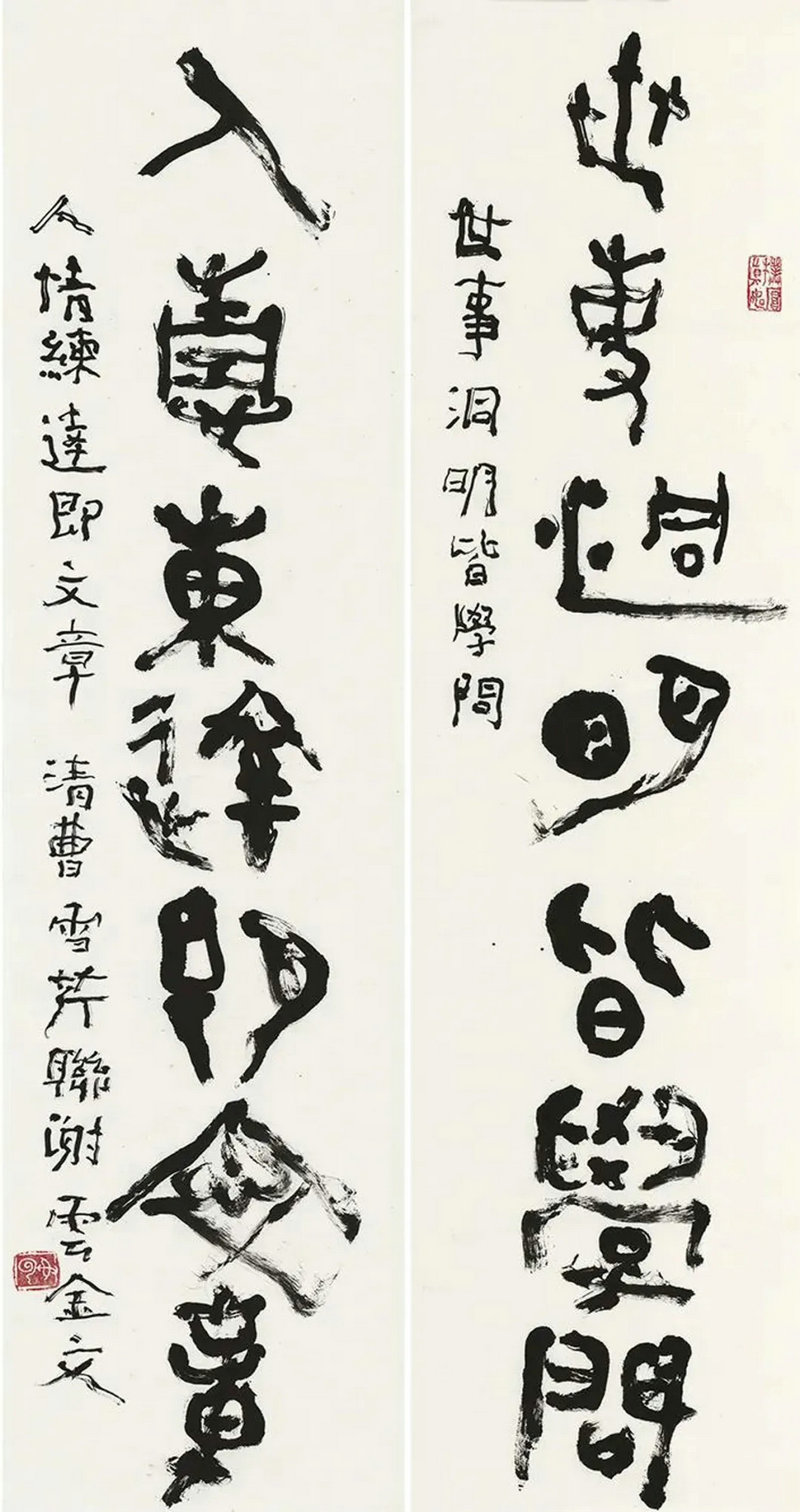 世事洞明皆學問
世事洞明皆學問
人情練達即文章
人情練達即文章 清曹雪芹聯謝雲金文